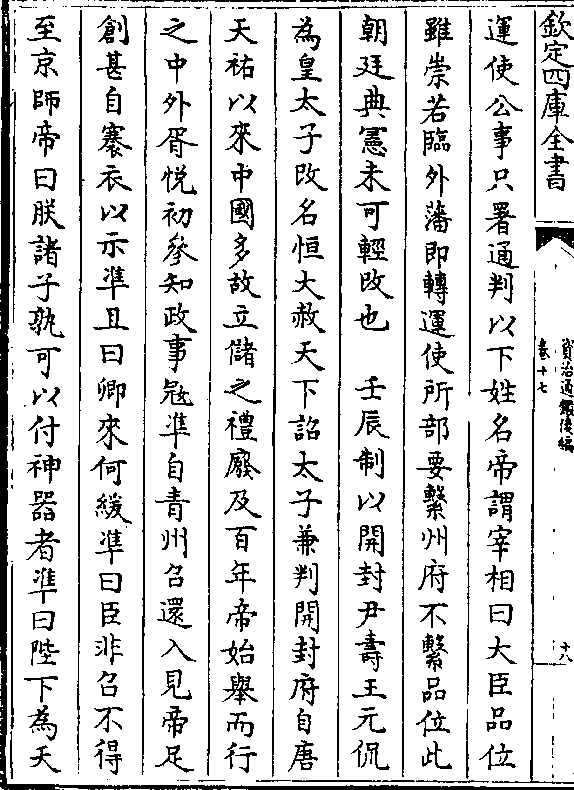 欽定四庫全書
資治通鑑後編
卷十七
十八
運使公事只署通判以下姓名帝謂宰相曰大臣品位
雖崇若臨外藩即轉運使所部要繫州府不繫品位此
朝廷典憲未可輕改也　壬辰制以開封尹壽王元侃
為皇太子改名恒大赦天下詔太子兼判開封府自唐
天祐以來中國多故立儲之禮廢及百年帝始舉而行
之中外胥悅初參知政事冦準自青州召還入見帝足
創甚自褰衣以示準且曰卿來何緩準曰臣非召不得
至京師帝曰朕諸子孰可以付神器者準曰陛下為天